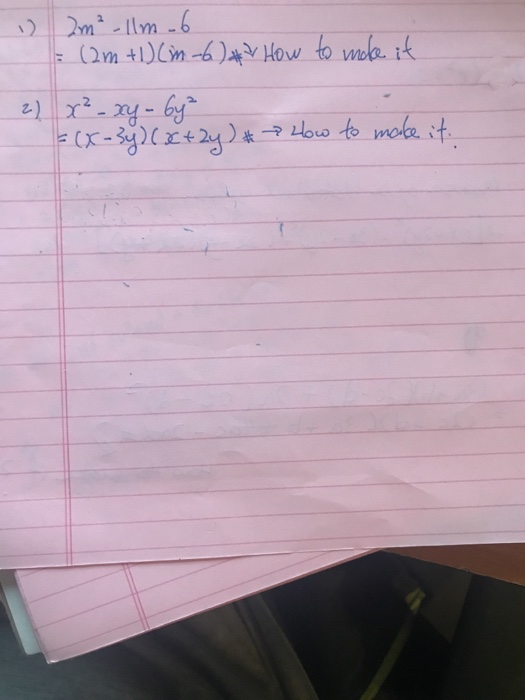 1) 2m² - 11m - 6
= (2m + 1)(m - 6) * → How to make it
2) x² - xy - 6y²
= (x - 3y)(x + 2y) * → How to make it.